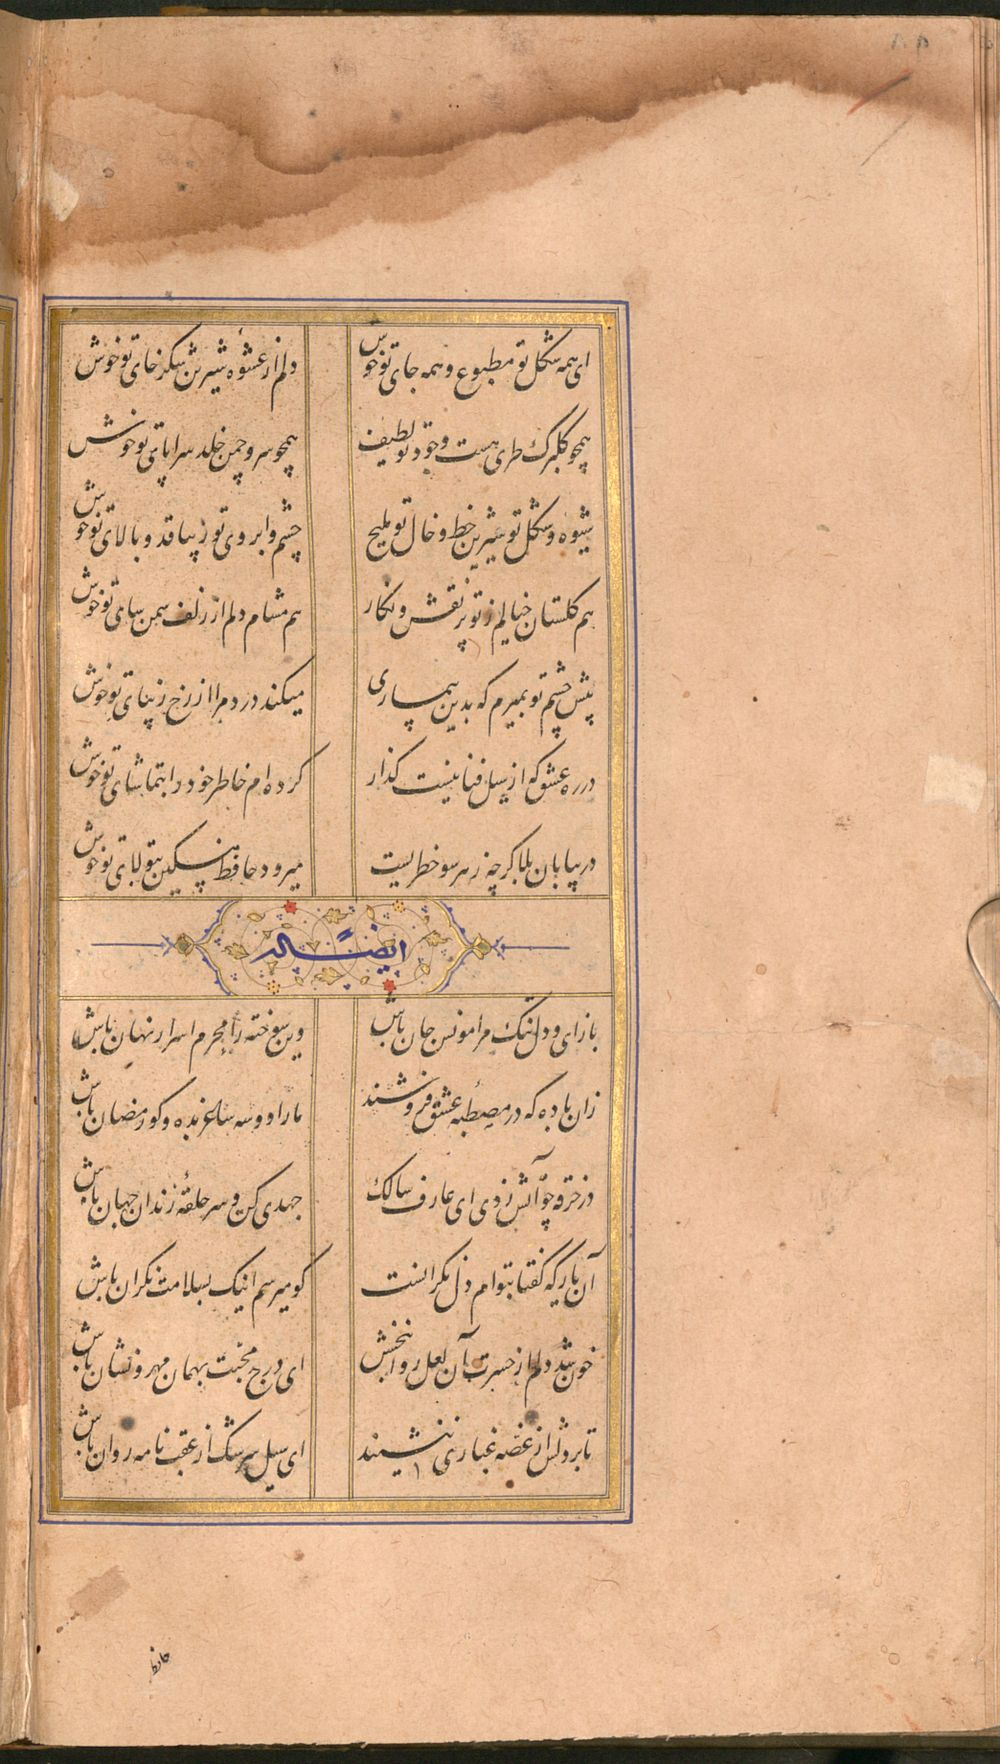 ای همه شکل تو مطبوع و همه جای تو خوش دلم از عشوهٔ شیرین شکرخای تو خوش
همچو کلبرک طری هست وجود تو لطیف همچو سرو چمن خلد سراپای تو خوش
شیوه و شکل تو شیرین خط و خال تو ملیح چشم و ابروی تو زیبا قد و بالای تو خوش
هم کلستان خیالم ز تو پر نقش و نکار هم مشام دلم از زلف سمن سای تو خوش
پیش چشم تو بمیرم که بدین بیماری میکند درد مرا از رخ زیبای تو خوش
در ره عشق که از سیل فنا نیست کذار کرده ام خاطر خود را بتماشای تو خوش
در بیابان بلا کرچه ز هر سو خطریست میرود حافظ مسکین بتولای تو خوش
ایضاً له
باز ای و دل تنک مرا مونس جان باش وین سوخته را محرم اسرار نهان باش
زان باده که در مصطبهٔ عشق فروشند ما را دو سه ساغر بده و کو رمضان باش
در خرقه چو آتش زدی ای عارف سالک جهدی کن و سر حلقهٔ رندان جهان باش
آن یار که کفتا بتوام دل نکرانست کو میرسم اینک بسلامت نکران باش
خون شد دلم از حسرت آن لعل روانبخش ای درج محبت بهمان مهر و نشان باش
تا بر دلش از غصه غباری ننشیند ای سیل سرشک از عقب نامه روان باش
حافظ